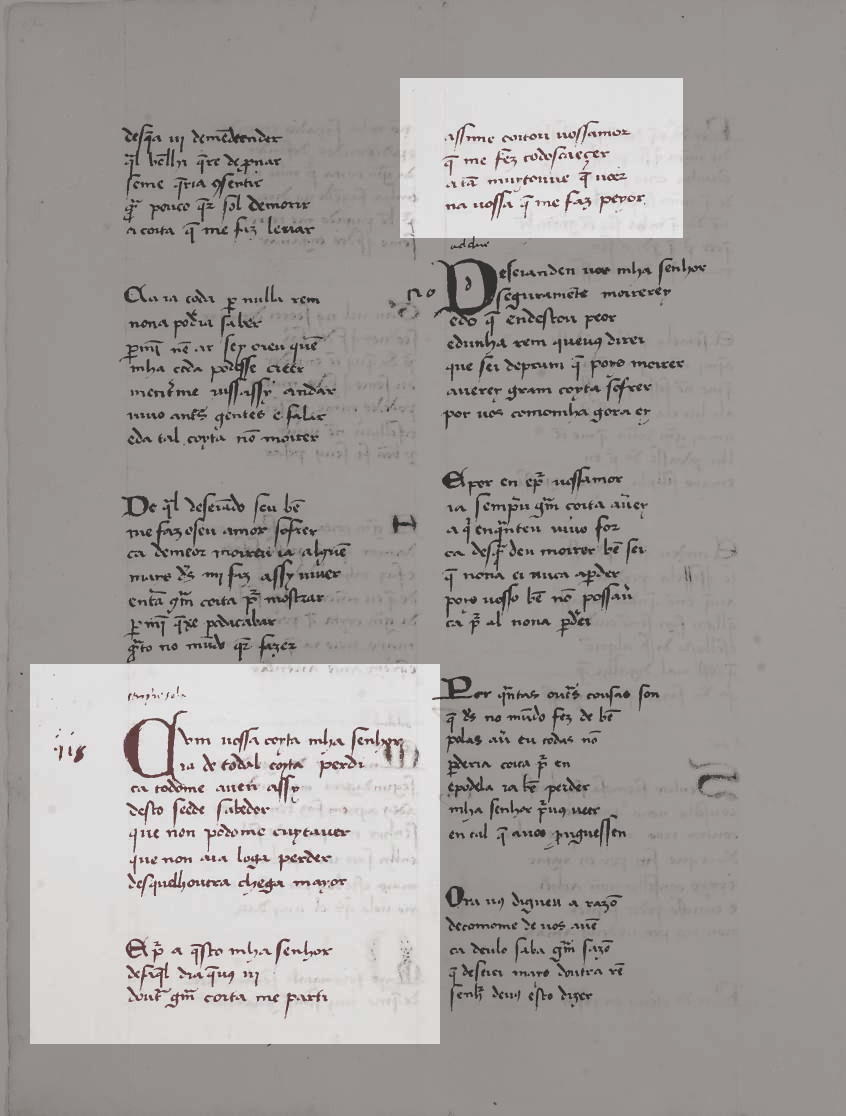 des q̃a uj demẽdeender
q̃l bẽ lhi q̃re deꝑnar
seme q̃ria ꝯsentir
q̃r pouco q̃r sol demorir
a coita q̃ me faz leuar
Ca ia coda ꝑ nulla rem
nona podia saber
ꝑmĩ nẽ ar sey
mha coda podesse creer
uiuo antr̃s gentes e falar
eda tal coyta nõ morrer
De q̃l deseiado seu bẽ
me faz oseu amor sofrer
ca demeor moireu ia alguẽ
mays d̃s mi faz assy uiuer
entã gm̃ coita pr̃ mostrar
ꝑ mĩ q̃xe podacabar
q̃to no mũdo q̃r fazer
Com uossa coyta mha senhor
ia de todal coyta perdi
ca todome auen assy
desto seede sabedor
que non podome cuytauer
que non aia loga perder
desquelhoutra chega mayor
E pr̃ a q̃sto mha senhor
des q̃l dia q̃uꝯ uj
doutr̃ gm̃ coita me parti
assi me coitou uossamor
q̃ me fez todoscaeçer
a tã muytoiue q̃ ueer
na uossa q̃ me faz peyor
Deseianden uos mha senhor
seguramẽte moirerey
edo q̃ endestou peor
edunha rem queuꝯ direi
que sei deprum q̃ poys moirer
auerey gram coyta sofrer
por uos como mha gora ey
E por en epr̃ uossamor
ia sempr̃u gm̃ coita auer
a q̃ enq̃nteu uiuo for
ca desq̃ deu morrer bẽ sei
q̃ nona ei nuca aꝑder
poys uosso bẽ nõ possau
ca pr̃ al nona ꝑdrei
Por q̃ntas outr̃s cousas son
q̃ d̃s no mũdo fez de bẽ
polas au eu todas nõ
ꝑderia coita pr̃ en
epodela ia bẽ perder
mha senhor pr̃ uꝯ ueer
en tal q̃ auos pruguessen
Ora uꝯ digueu a razõ
decomome de uos auẽ
ca deulo saba gm̃ sazõ
q̃ deseiei mays doutra rẽ
senhr̃ deuꝯ esto dizer